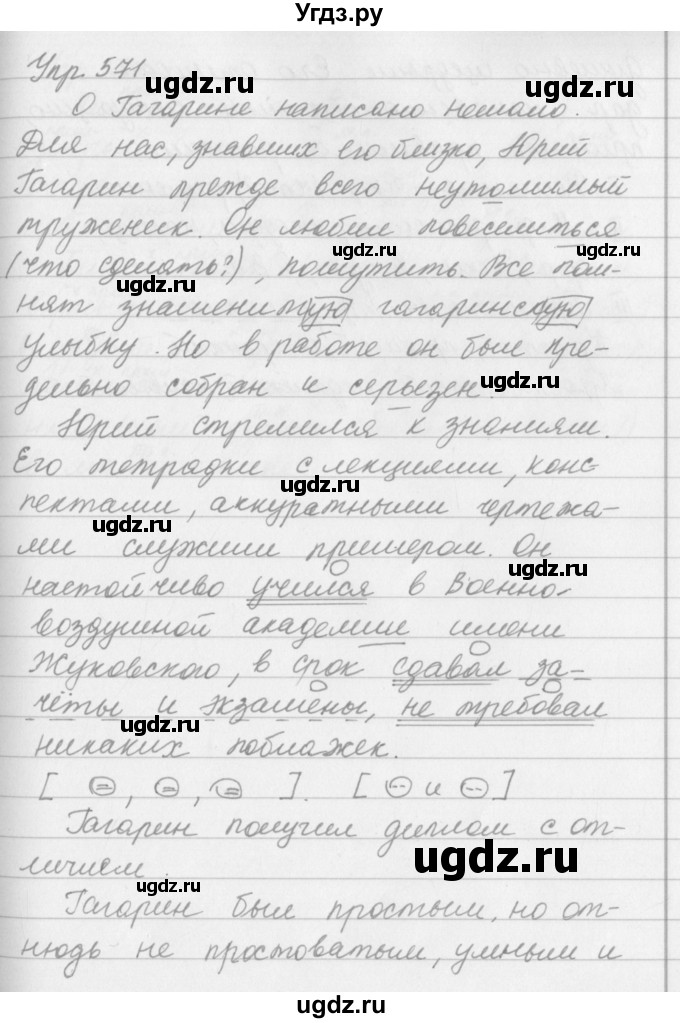 Угдз.ру
Упр. 571
О Гагарине написано немало.
Для нас, знавших его близко, Юрий
Гагарин прежде всего неутомимый
труженик. Он любил повеселиться
(что сделать?), пошутить. Все пом-
нят знаменитую гагаринскую
улыбку. Но в работе он был пре-
дельно собран и серьезен.
Юрий стремился к знаниям.
Его тетрадки с лекциями, конс-
пектами, аккуратными чертежа-
ми служили примером. Он
настойчиво учился в Военно-
воздушной академии имени
Жуковского, в срок сдавал за-
чёты и экзамены, не требовал
никаких поблажек.
[ , , ]. [ и ]
Гагарин получил диплом с от-
личием.
Гагарин был простым, но от-
нюдь не простоватым, умным и
ugdz.ru
ugdz.ru
ugdz.ru
ugdz.ru
ugdz.ru
ugdz.ru
ugdz.ru
ugdz.ru
ugdz.ru
ugdz.ru
ugdz.ru
ugdz.ru
ugdz.ru